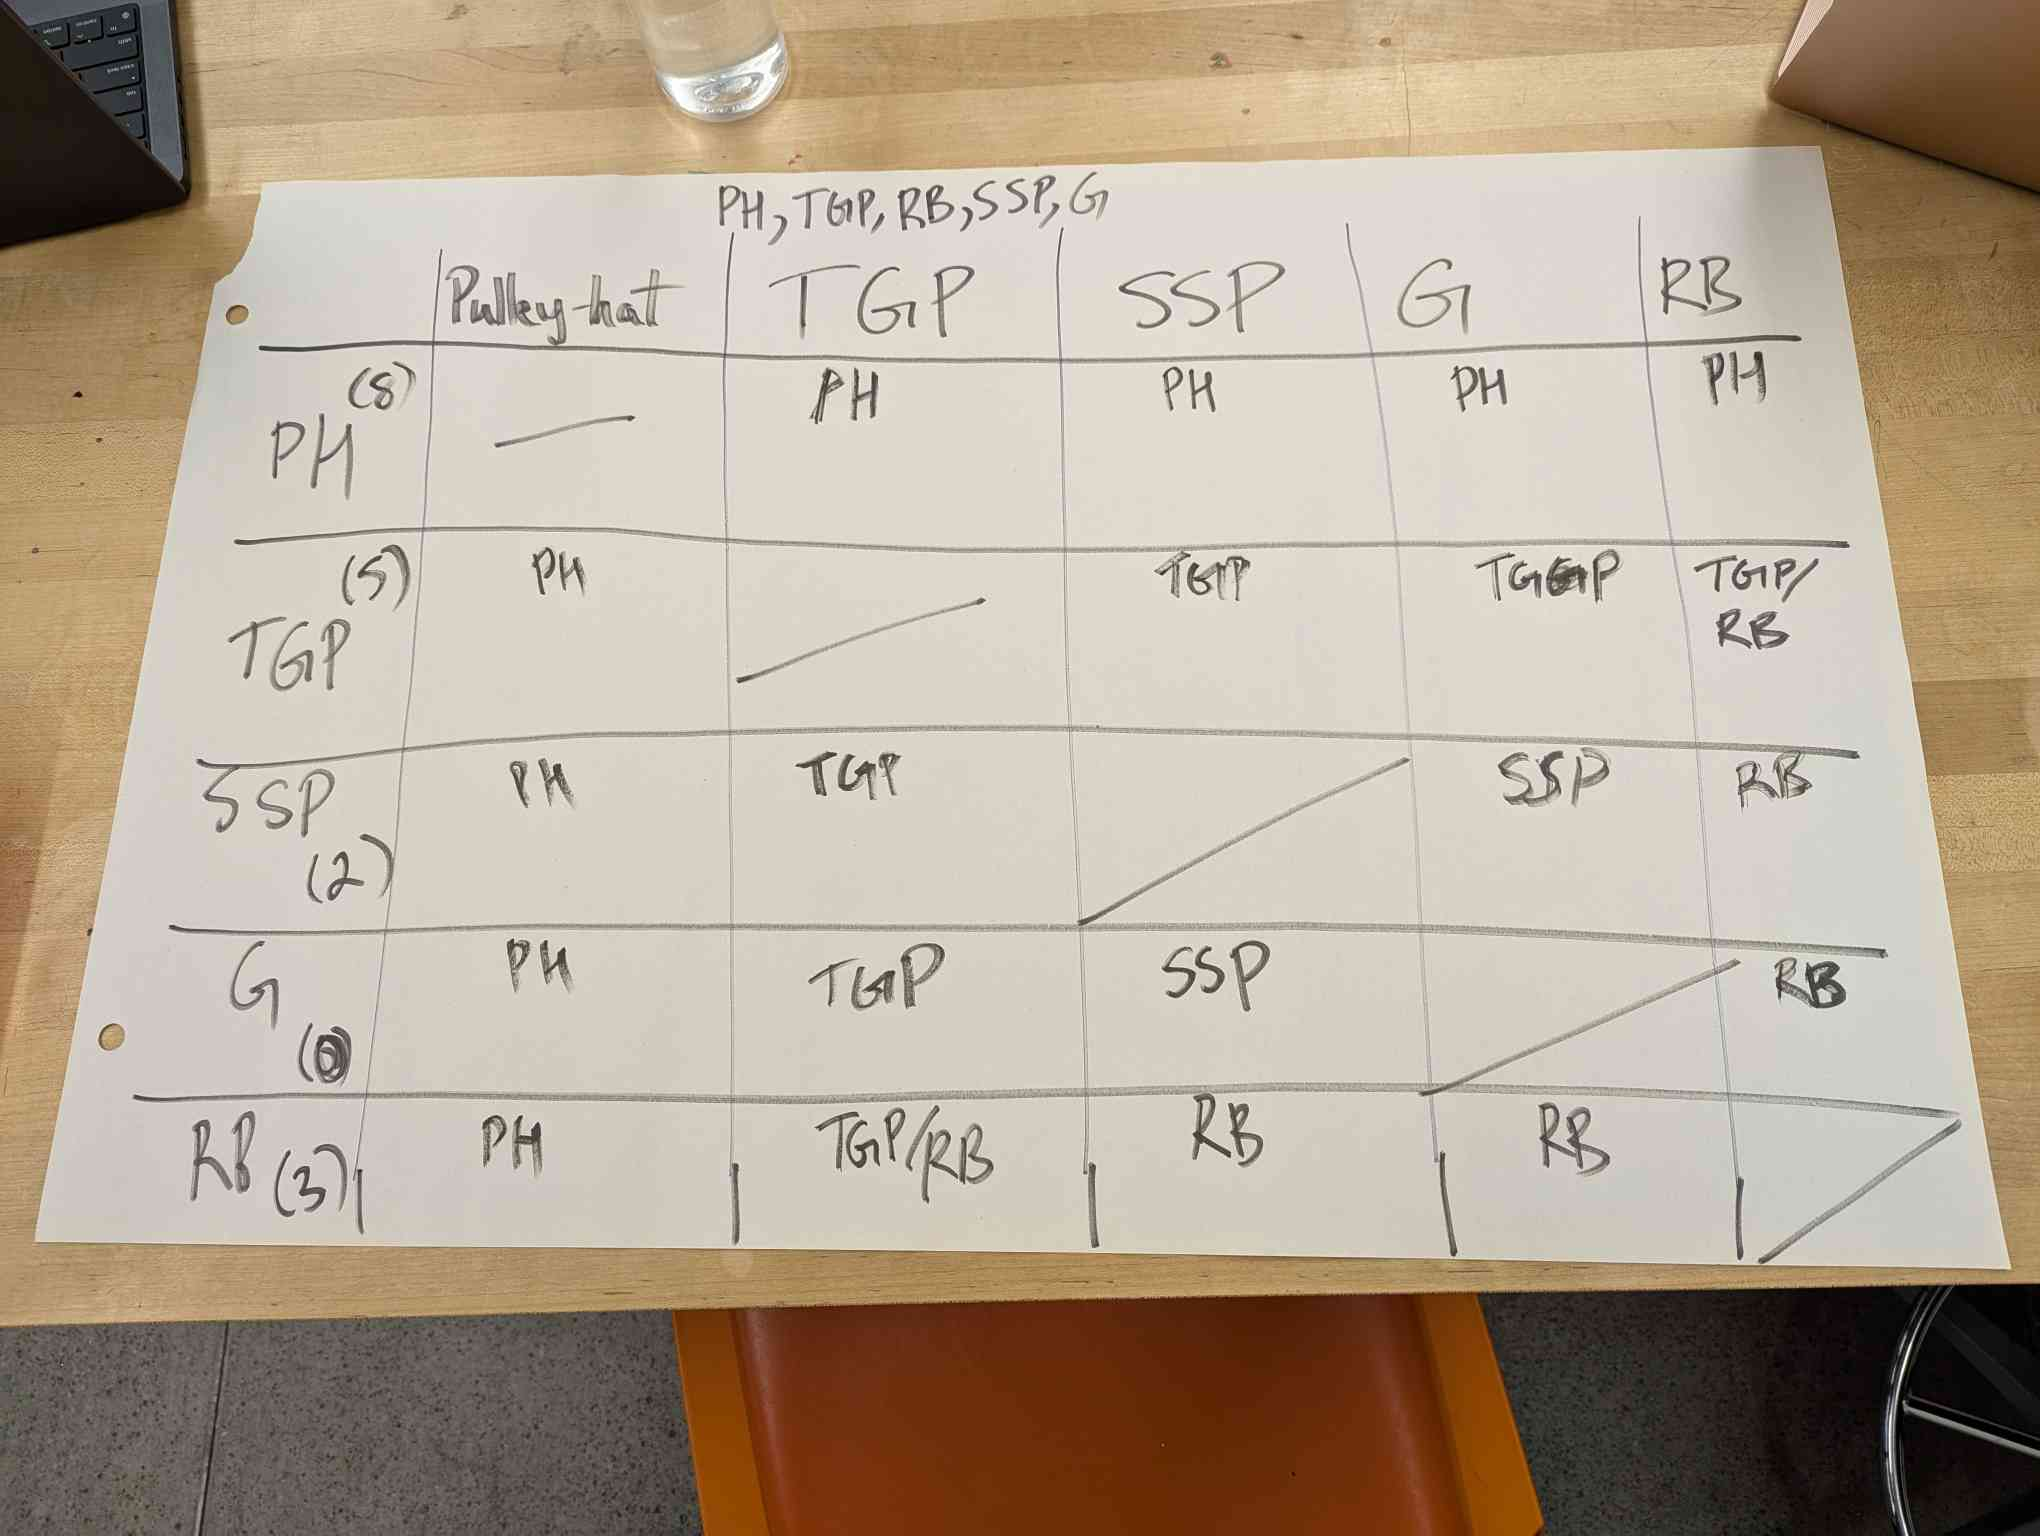 PH, TGP, RB, SSP, G
Pulley-hat TGP SSP G RB
PH (8) — PH PH PH PH
TGP (5) PH TGP TGGP TGP/
RB
SSP (2) PH TGP SSP RB
G (0) PH TGP SSP RB
RB (3) PH TGP/RB RB RB